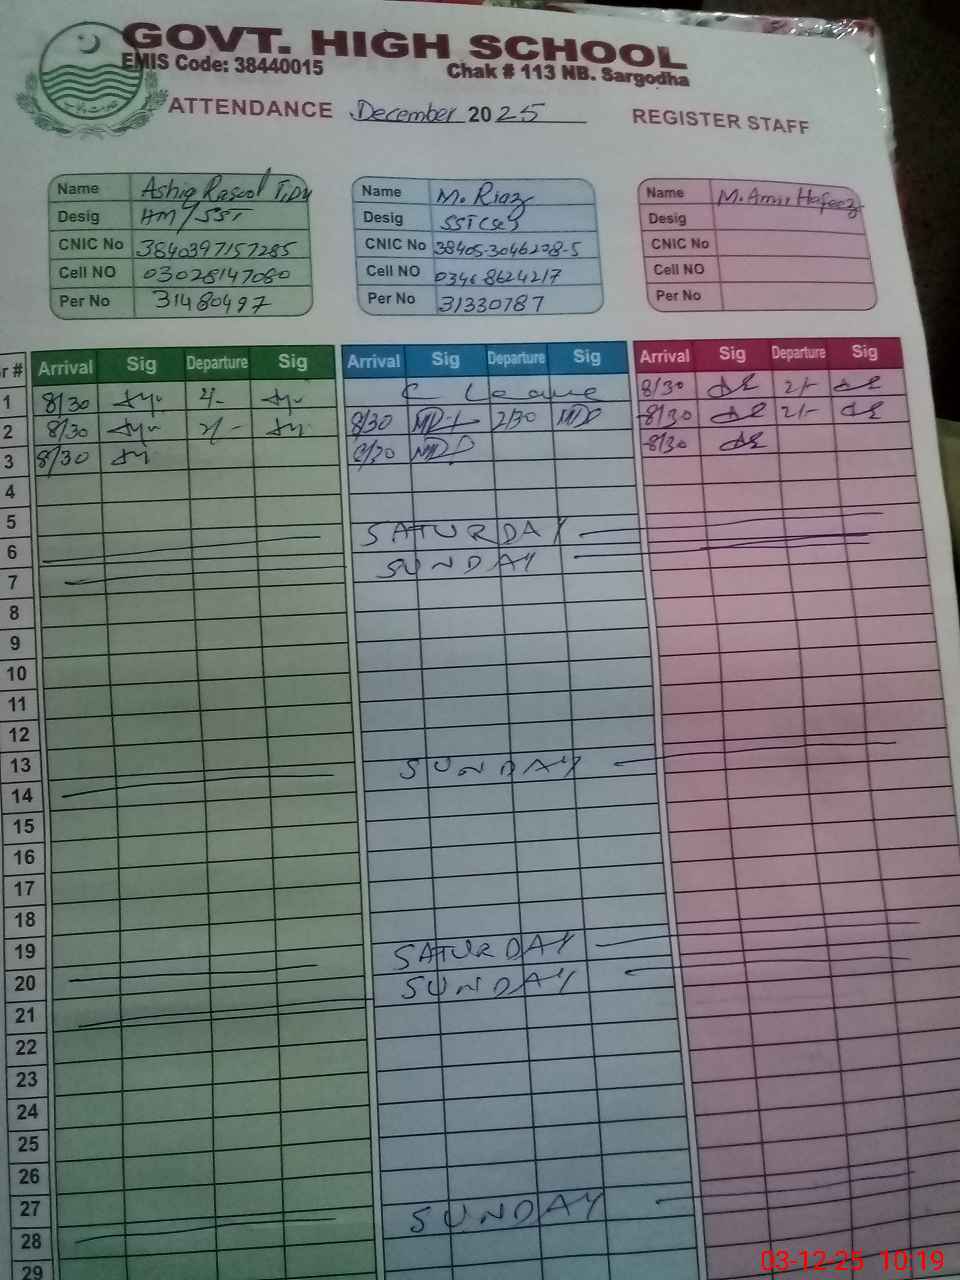 GOVT. HIGH SCHOOL
EMIS Code: 38440015
Chak # 113 NB. Sargodha
ATTENDANCE December 2025 REGISTER STAFF
Name Ashiq Rasool
Desig HM/SST
CNIC No 3840397157285
Cell NO 03028147080
Per No 31480497
Name M. Riaz
Desig SST
CNIC No 38405-3046208-5
Cell NO 03468624217
Per No 31330787
Name M. Amir Hafeez
Desig
CNIC No
Cell NO
Per No
r # Arrival Sig Departure Sig Arrival Sig Departure Sig Arrival Sig Departure Sig
1 8/30 2/- C Leave 8/30 2/-
2 8/30 2/- 8/30 2/30 8/30 2/-
3 8/30 8/30 8/30
4
5
6 SATURDAY
7 SUNDAY
8
9
10
11
12
13
14 SUNDAY
15
16
17
18
19
20 SATURDAY
21 SUNDAY
22
23
24
25
26
27
28 SUNDAY
29
03-12-25 10:19